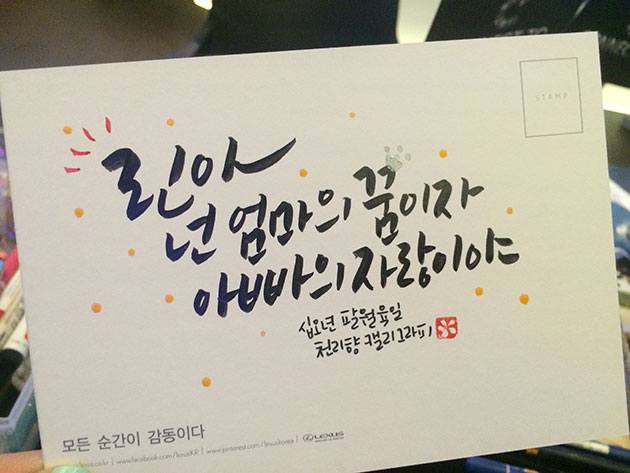 STAMP
린아
넌 엄마의 꿈이자
아빠의 자랑이야
십오년 팔월육일
천리향 캘리그라피
모든 순간이 감동이다
www.facebook.com/lexusKR | www.pinterest.com/lexuskorea | LEXUS